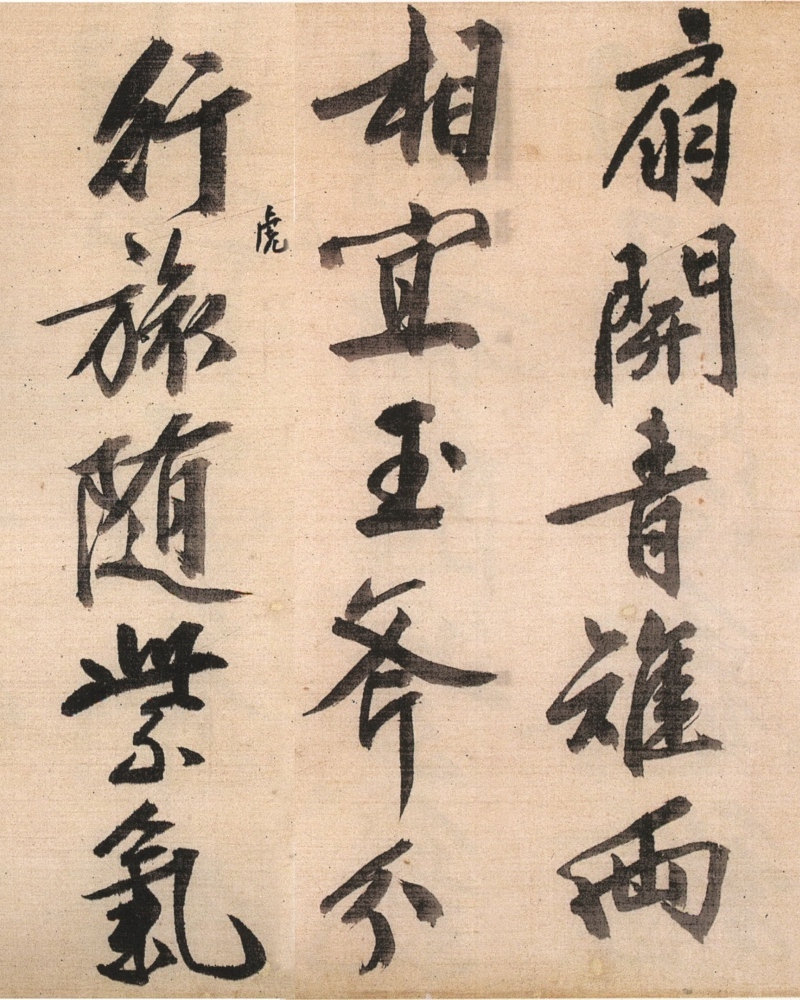 扇開青雉兩
相宜玉斧分
行虎旅随紫氣